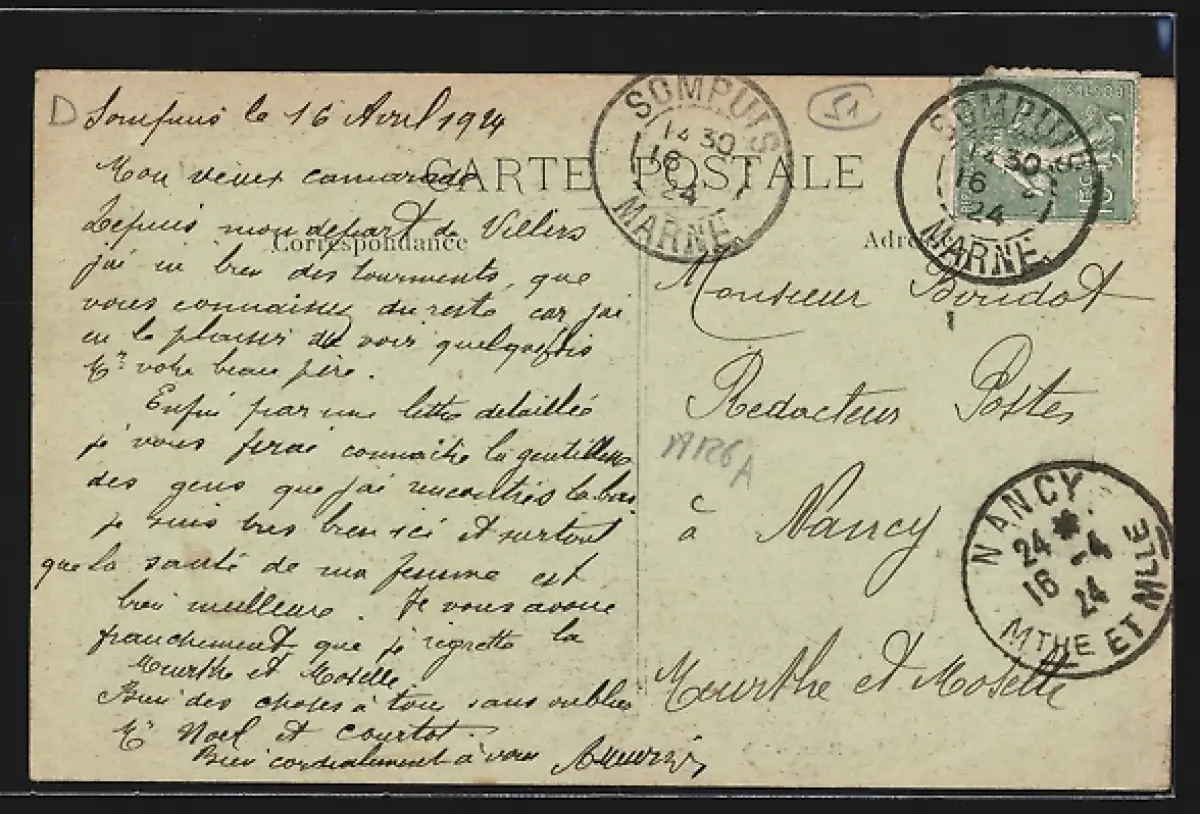 D
Sompuis le 16 Avril 1924
CARTE POSTALE
Correspondance
Mon vieux camarade
Depuis mon départ de Villers
j'ai eu bien des tourments, que
vous connaissez du reste car j'ai
eu le plaisir de voir quelquefois
Mr votre beau père.
Enfin par une lettre detaillée
je vous ferai connaitre la gentilless
des gens que j'ai rencontrés la bas
je suis tres bien ici et surtout
que la santé de ma femme est
bien meilleure. Je vous avoue
franchement que je regrette la
Meurthe et Moselle.
Bien des choses à tous sans oublier
Mr Noel et Courtot.
Bien cordialement à vous
SOMPUIS
14 30
16
24
MARNE
51
SOMPUIS
14 30
16
24
MARNE
Monsieur Boudot
Redacteur Postes
à Nancy
Meurthe et Moselle
NANCY
24 * -4
16 24
MTHE ET MLLE